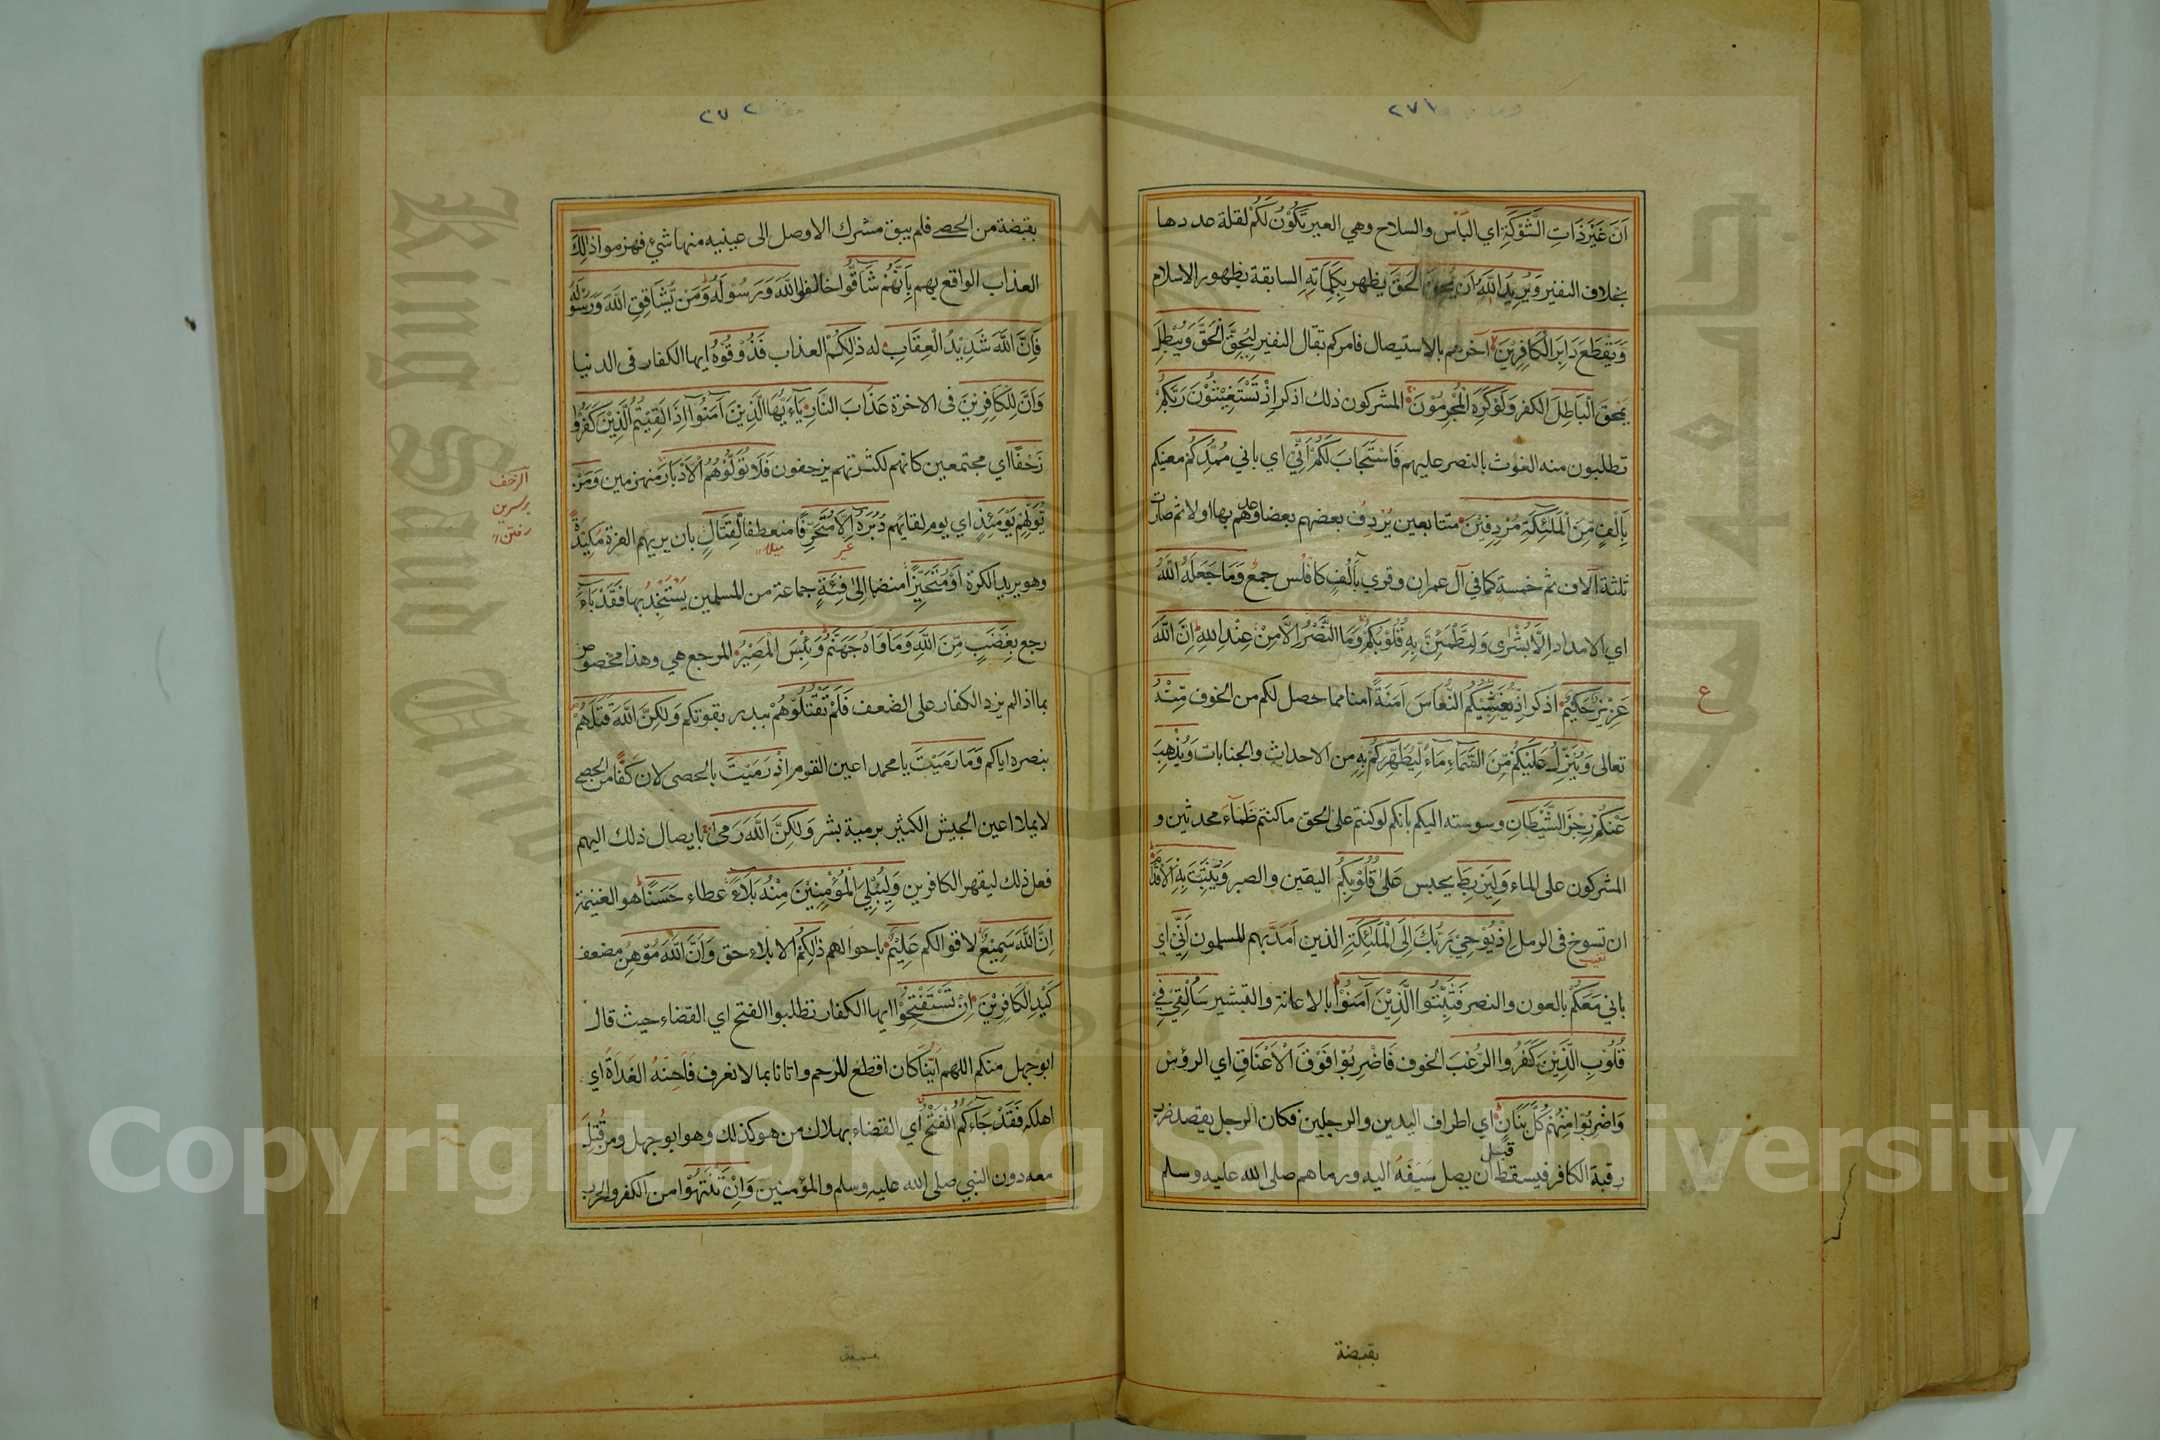 ٢٧١
اَنَّ غَيْرَ ذَاتِ الشَّوْكَةِ اي البَاس والسلاح وهي العير تَكُوْنُ لَكُمْ لقلة عددها
بخلاف النفير وَيُرِيدُ اللّٰهُ اَن يُحِقَّ الْحَقَّ يظهر بِكَلِمَاتِهِ السابقة بظهور الاسلام
وَيَقْطَعَ دَابِرَ الْكَافِرِيْنَ آخرهم بالاستيصال فامركم بقتال النفير لِيُحِقَّ الْحَقَّ وَيُبْطِلَ
يمحق الْبَاطِلَ الكفر وَلَوْ كَرِهَ الْمُجْرِمُوْنَ المشركون ذلك اذكر اِذْ تَسْتَغِيْثُوْنَ رَبَّكُمْ
تطلبون منه الغوث بالنصر عليهم فَاسْتَجَابَ لَكُمْ اَنِّي اي باني مُمِدُّكُمْ معينكم
بِاَلْفٍ مِّنَ الْمَلٰئِكَةِ مُرْدِفِيْنَ متتابعين يُردِف بعضهم بعضا وعدهم بها اولا ثم صارت
ثلثة آلاف ثم خمسة كما في آل عمران وقري بآلُفٍ كافلُس جمع وَمَا جَعَلَهُ اللّٰهُ
اي الامداد اِلَّا بُشْرٰى وَلِتَطْمَئِنَّ بِهِ قُلُوْبُكُمْ وَمَا النَّصْرُ اِلَّا مِنْ عِنْدِ اللّٰهِ اِنَّ اللّٰهَ
عَزِيْزٌ حَكِيْمٌ اذكر اِذْ يُغَشِّيْكُمُ النُّعَاسَ اَمَنَةً امنا مما حصل لكم من الخوف مِّنْهُ
تعالى وَيُنَزِّلُ عَلَيْكُمْ مِّنَ السَّمَآءِ مَآءً لِّيُطَهِّرَكُمْ بِهِ من الاحداث والجنابات وَيُذْهِبَ
عَنْكُمْ رِجْزَ الشَّيْطَانِ وسوسته اليكم بانكم لو كنتم على الحق ما كنتم ظمآء محدثين و
المشركون على الماء وَلِيَرْبِطَ يحبس عَلٰى قُلُوْبِكُمْ اليقين والصبر وَيُثَبِّتَ بِهِ الْاَقْدَامَ
ان تسوخ في الرمل اِذْ يُوْحِيْ رَبُّكَ اِلَى الْمَلٰئِكَةِ الذين اَمَدَّ بهم للمسلمون اَنِّي اي
باني مَعَكُمْ بالعون والنصر فَثَبِّتُوا الَّذِيْنَ آمَنُوْا بالاعانة والتبشير سَاُلْقِيْ فِيْ
قُلُوْبِ الَّذِيْنَ كَفَرُوا الرُّعْبَ الخوف فَاضْرِبُوْا فَوْقَ الْاَعْنَاقِ اي الرؤس
وَاضْرِبُوْا مِنْهُمْ كُلَّ بَنَانٍ اي اطراف اليدين والرجلين فكان الرجل يقصد ضرب
قبل
رقبة الكافر فيسقط ان يصل سَيفَهُ اليه ورماهم صلى الله عليه وسلم
ع
بقبضة
٢٧٢
بقبضة من الحصى فلم يبق مشرك الا وصل الى عينيه منها شيء فهزموا ذٰلِكَ
العذاب الواقع بهم بِاَنَّهُمْ شَآقُّوا خالفوا اللّٰهَ وَرَسُوْلَهُ وَمَنْ يُّشَاقِقِ اللّٰهَ وَرَسُوْلَهُ
فَاِنَّ اللّٰهَ شَدِيْدُ الْعِقَابِ له ذٰلِكُمْ العذاب فَذُوْقُوْهُ ايها الكفار في الدنيا
وَاَنَّ لِلْكَافِرِيْنَ في الاخرة عَذَابَ النَّارِ يَآءَيُّهَا الَّذِيْنَ آمَنُوْا اِذَا لَقِيْتُمُ الَّذِيْنَ كَفَرُوْا
زَحْفًا اي مجتمعين كانهم لكثرتهم يزحفون فَلَا تُوَلُّوْهُمُ الْاَدْبَارَ منهزمين وَمَنْ
يُّوَلِّهِمْ يَوْمَئِذٍ اي يوم لقائهم دُبُرَهُ اِلَّا مُتَحَرِّفًا منعطفا لِّقِتَالٍ بان يريهم الفرة مكيدةً
وهو يريد الكرة اَوْ مُتَحَيِّزًا منضما اِلٰى فِئَةٍ جماعة من المسلمين يَسْتَنْجِدُ بها فَقَدْ بَآءَ
رجع بِغَضَبٍ مِّنَ اللّٰهِ وَمَاْوَاهُ جَهَنَّمُ وَبِئْسَ الْمَصِيْرُ المرجع هي وهذا مخصوص
بما اذا لم يزد الكفار على الضعف فَلَمْ تَقْتُلُوْهُمْ ببدر بقوتكم وَلٰكِنَّ اللّٰهَ قَتَلَهُمْ
بنصره اياكم وَمَا رَمَيْتَ يا محمد اعين القوم اِذْ رَمَيْتَ بالحصى لان كَفًّا من الحصى
لا يملا اعين الجيش الكثير برمية بشر وَلٰكِنَّ اللّٰهَ رَمٰى بايصال ذلك اليهم
فعل ذلك ليقهر الكافرين وَلِيُبْلِيَ الْمُؤْمِنِيْنَ مِنْهُ بَلَآءً عطاء حَسَنًا هو الغنيمة
اِنَّ اللّٰهَ سَمِيْعٌ لاقوالكم عَلِيْمٌ باحوالهم ذٰلِكُمْ الابلاء حق وَاَنَّ اللّٰهَ مُوْهِنُ مضعف
كَيْدِ الْكَافِرِيْنَ اِنْ تَسْتَفْتِحُوْا ايها الكفار تطلبوا الفتح اي القضاء حيث قال
ابو جهل منكم اللهم اَيّنا كان اقطع للرحم واتانا بما لا نعرف فَاَحِنْهُ الغَدَاةَ اي
اهلكه فَقَدْ جَآءَكُمُ الْفَتْحُ اَي القضاء بهلاك من هو كذلك وهو ابو جهل ومن قُتِلَ
معه دون النبي صلى الله عليه وسلم والمؤمنين وَاِنْ تَنْتَهُوْا من الكفر والحرب
الزحف
برسرين
رفتن
King Saud University
Copyright © King Saud University